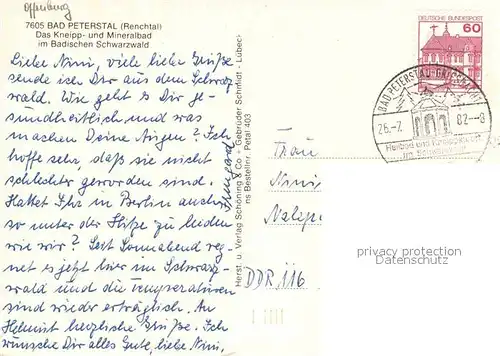 Offenburg
7605 BAD PETERSTAL (Renchtal)
Das Kneipp- und Mineralbad
im Badischen Schwarzwald
Liebe Nini, viele liebe Grüße
sende ich Dir aus dem Schwarz-
wald. Wie geht es Dir ge-
sundheitlich und was
machen Deine Augen? Ich
hoffe sehr, daß sie nicht
schlechter geworden sind.
Hattet Ihr in Berlin auch
so unter der Hitze zu leiden
wie wir? Seit Sonnabend reg-
net es jetzt hier im Schwarz-
wald und die Temperaturen
sind wieder erträglich. An
Helmut herzliche Grüße. Ich
wünsche Dir alles Gute, liebe Nini,
Irmgard
Herst. u. Verlag Schöning & Co + Gebrüder Schmidt - Lübeck
Bestellnr. Petal 403
DEUTSCHE BUNDESPOST
60
BAD PETERSTAL-GRIESBACH
26.-7. 82.--8
Heilbad und Kneippkurort
im Schwarzwald
Frau
Nini
DDR 116
privacy protection
Datenschutz